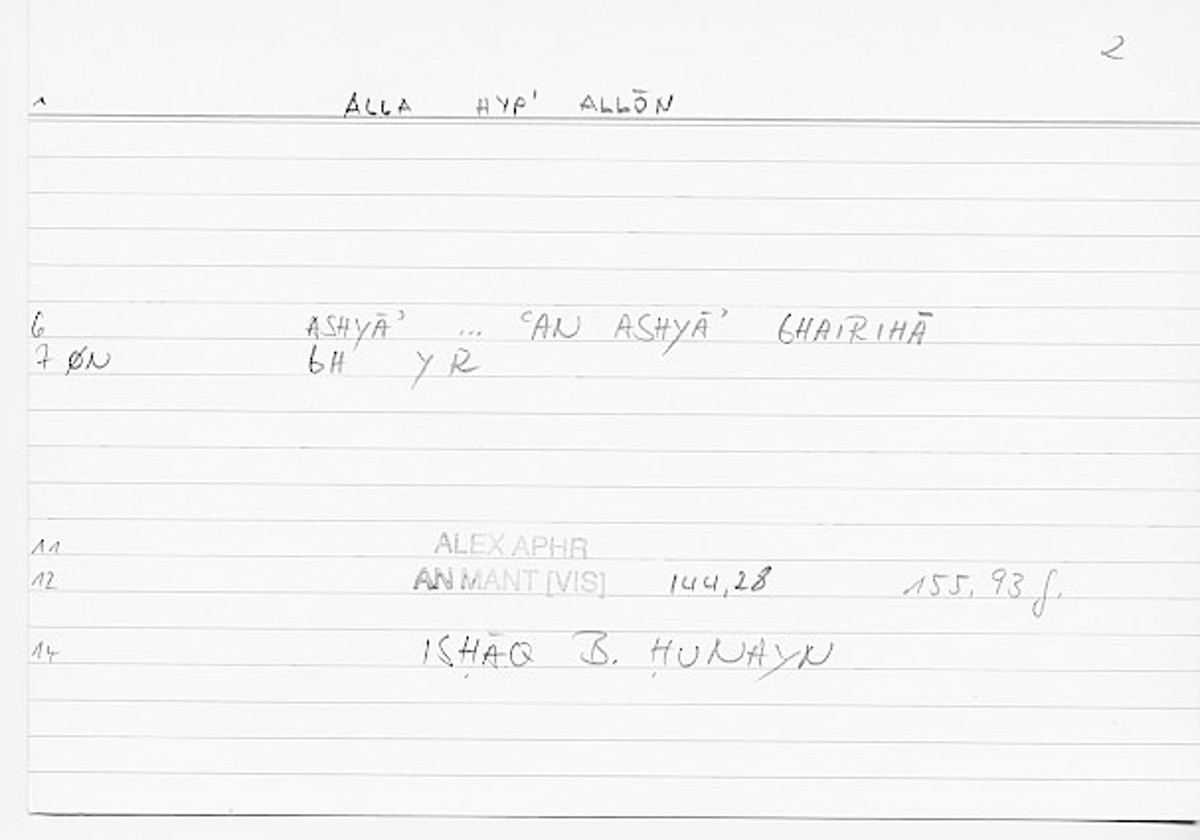 2
1 ALLA HYP' ALLŌN
6 ASHYĀʾ ... ʿAN ASHYĀʾ GHAIRIHĀ
7 ØN GH Y R
11 ALEX APHR
12 AN MANT [VIS] 144,28 155,93 f.
14 ISḤĀQ B. ḤUNAYN